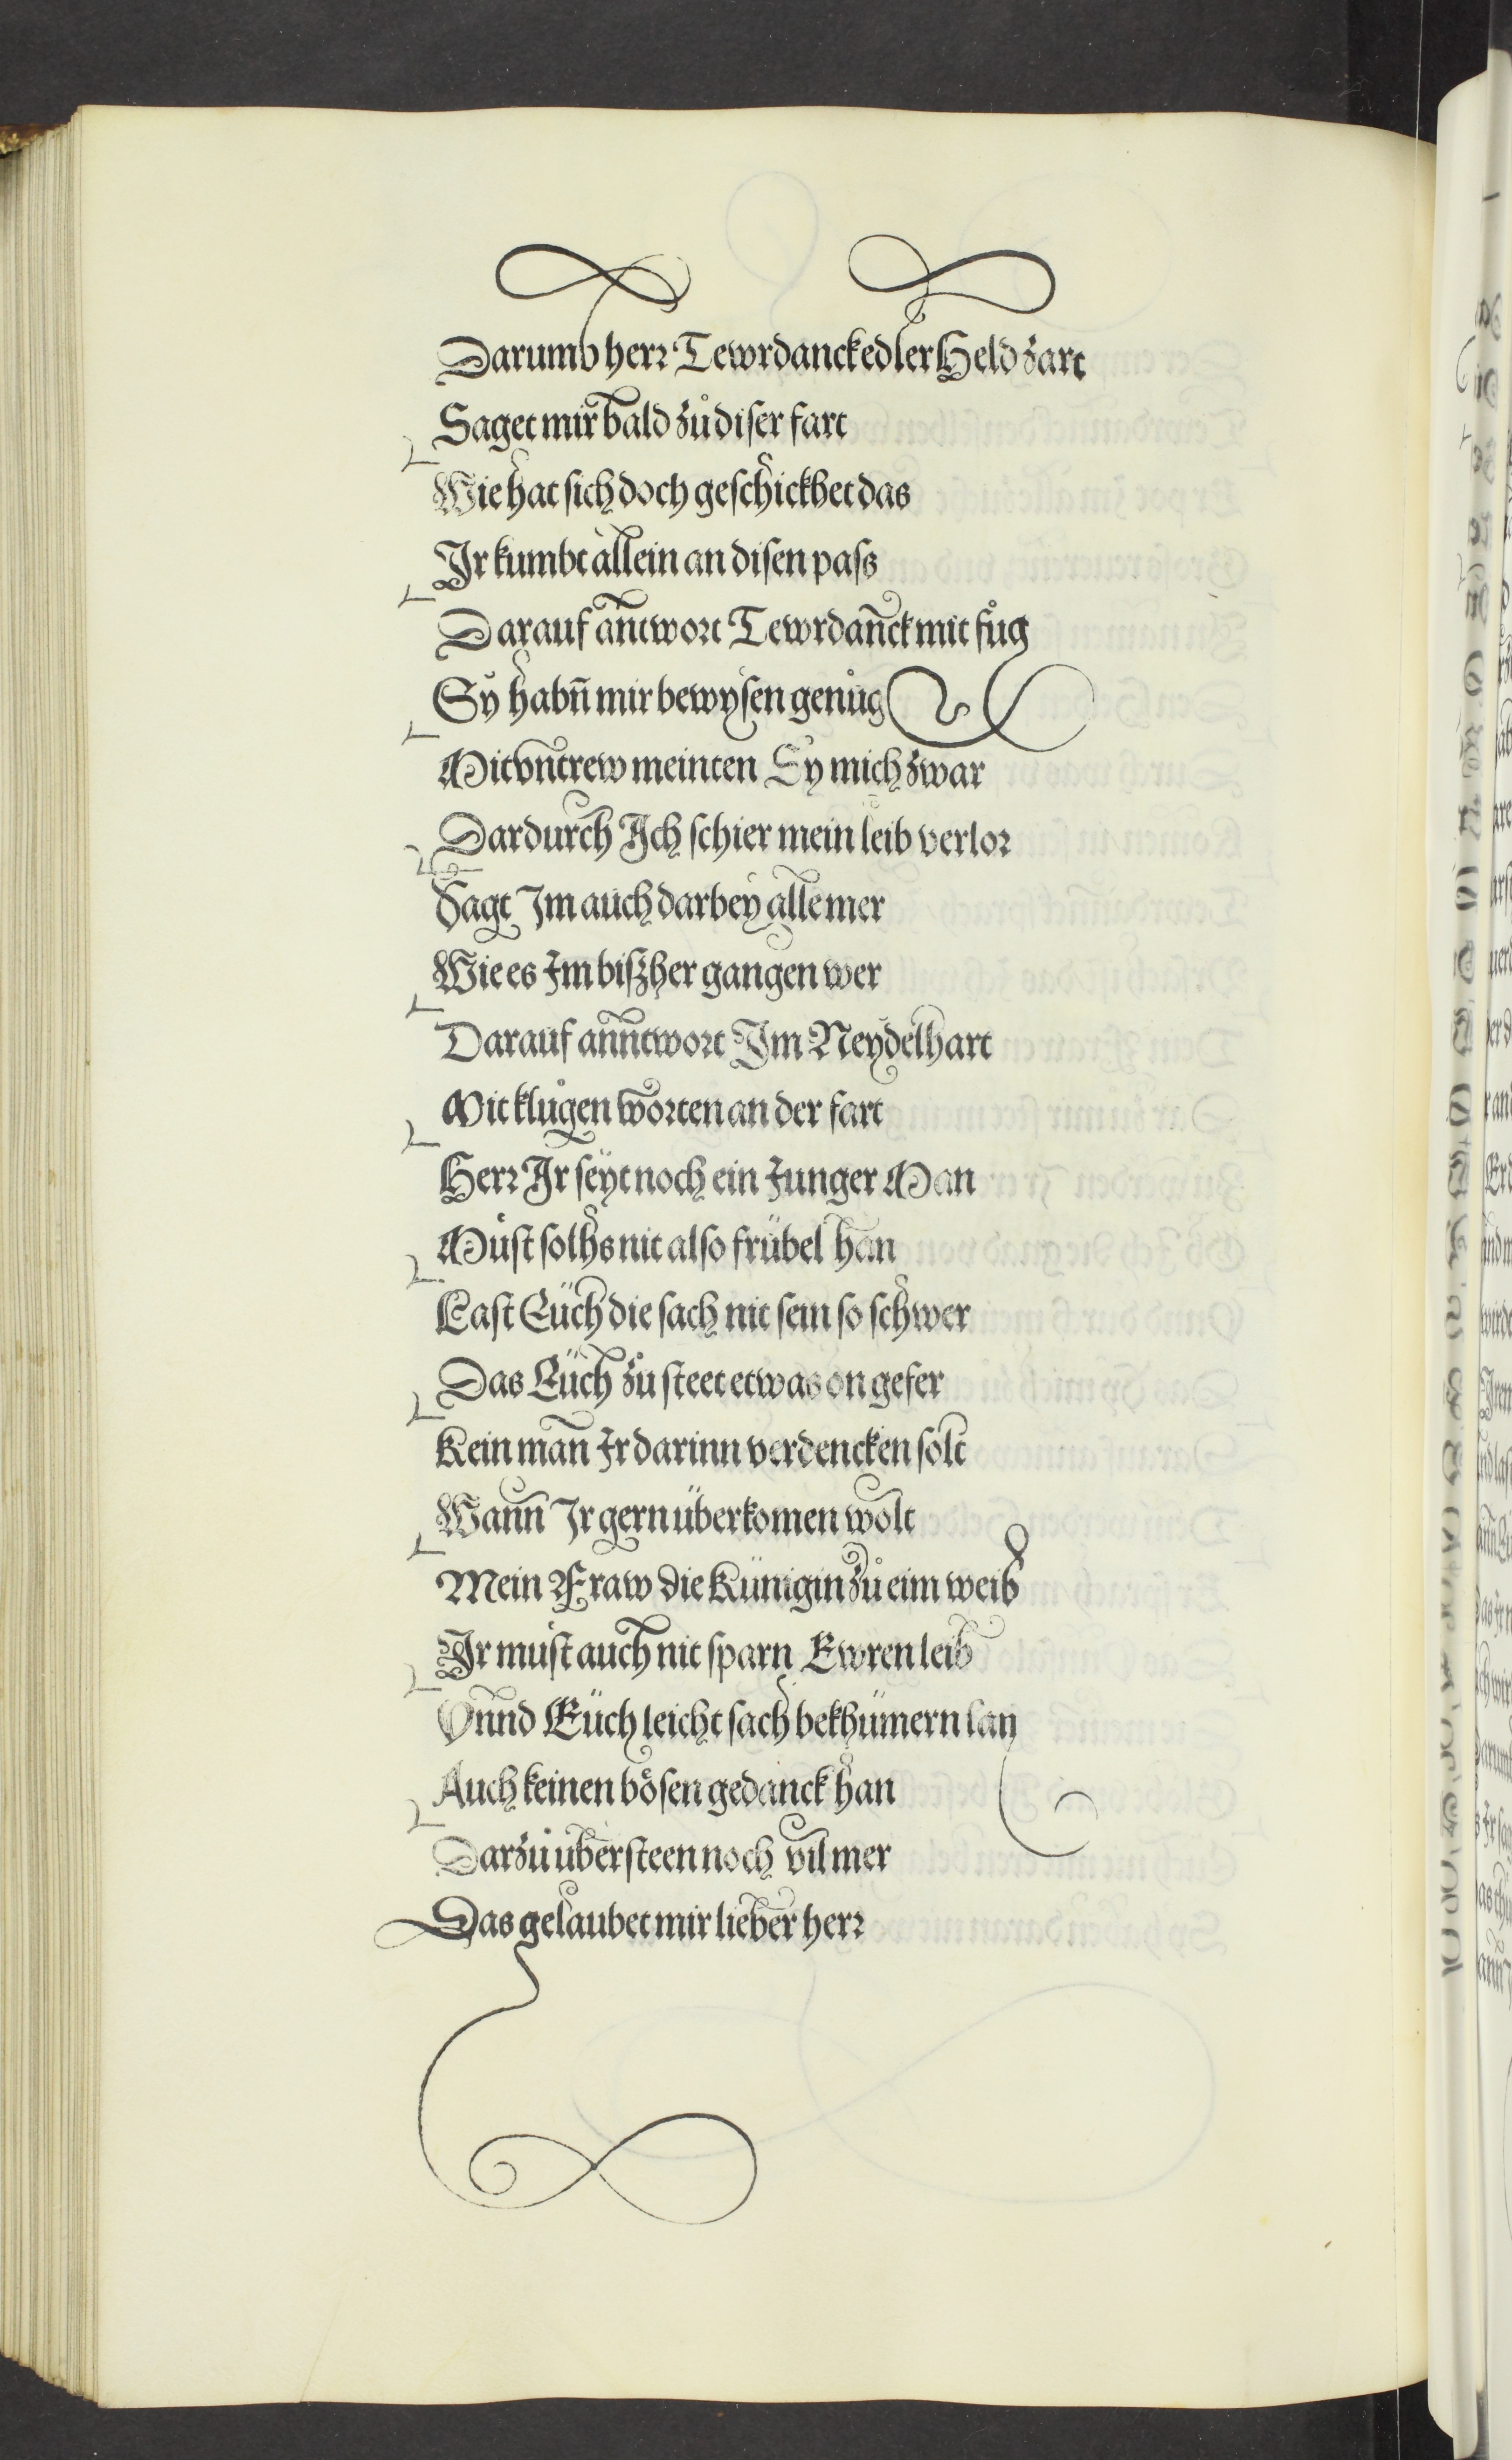 Darumb herr Tewrdanck edler Held zart
Saget mir bald zů diser fart
Wie hat sich doch geschickhet das
Ir kumbt allein an disen pass
Darauf antwort Tewrdañck mit fůg
Sÿ habñ mir bewysen genůg
Mit vntrew meinten Sy mich zwar
Dardurch Ich schier mein leib verlor
Sagt Im auch darbey alle mer
Wie es Im biszher gangen wer
Darauf anntwort Im Neydelhart
Mit klůgen worten an der fart
Herr Ir seyt noch ein Junger Man
Müst solhs nit also für übel han
Last Eüch die sach nit sein so schwer
Das Eüch zů steet etwas on gefer
Kein man Ir darinn verdencken solt
Wann Ir gern überkomen wolt
Mein Fraw die Künigin zů eim weib
Ir must auch nit sparn Ewren leib
Vnnd Eüch leicht sach bekhümern lan
Auch keinen bösen gedanck han
Darzů übersteen noch vil mer
Das gelaubet mir lieber herr